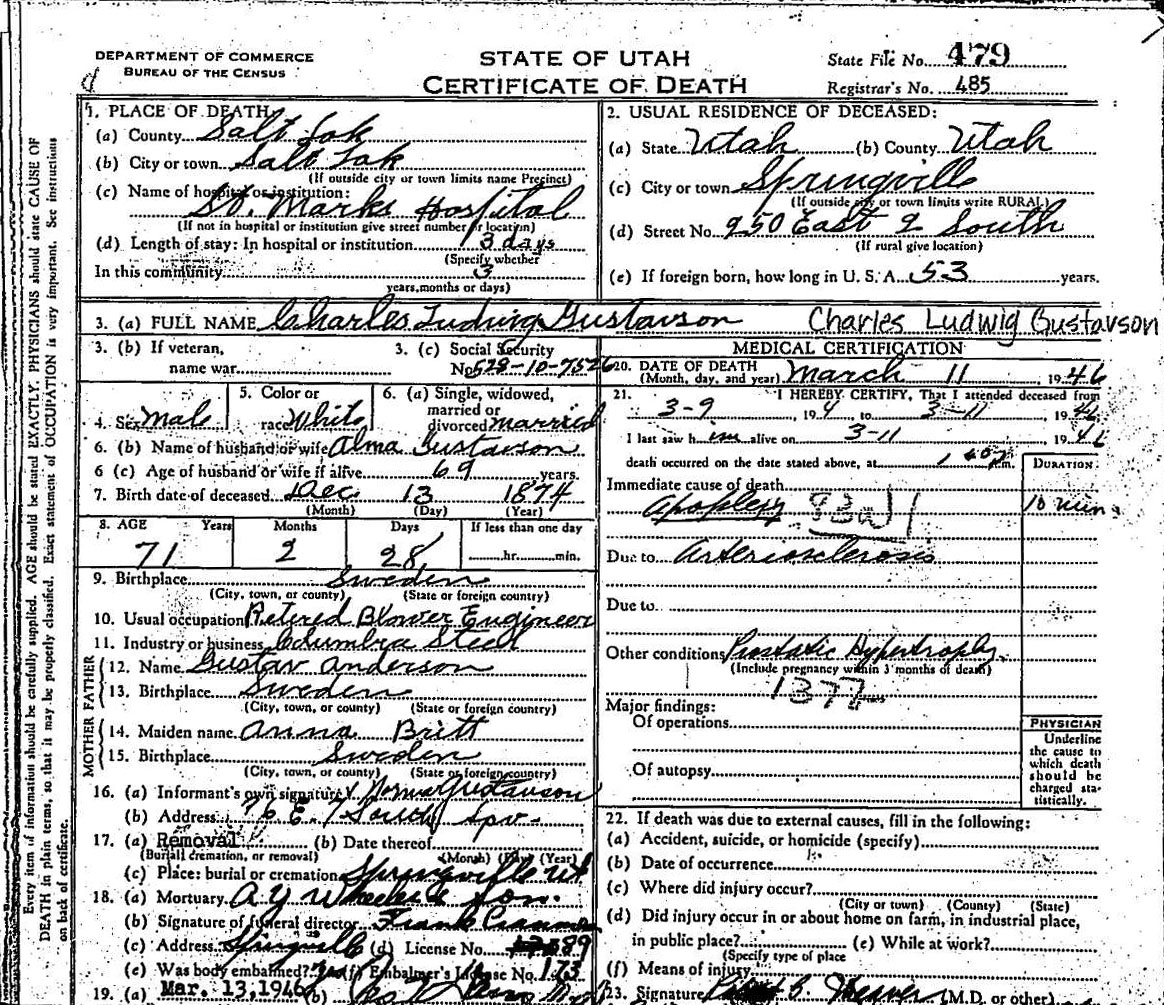 DEPARTMENT OF COMMERCE
BUREAU OF THE CENSUS
STATE OF UTAH
CERTIFICATE OF DEATH
State File No. 479
Registrar's No. 485
Every item of information should be carefully supplied. AGE should be stated EXACTLY. PHYSICIANS should state CAUSE OF
DEATH in plain terms, so that it may be properly classified. Exact statement of OCCUPATION is very important. See instructions
on back of certificate.
1. PLACE OF DEATH:
(a) County Salt Lak
(b) City or town Salt Lak
(If outside city or town limits name Precinct)
(c) Name of hospital or institution:
St. Marks Hospital
(If not in hospital or institution give street number or location)
(d) Length of stay: In hospital or institution 3 days
(Specify whether
In this community 3
years, months or days)
2. USUAL RESIDENCE OF DECEASED:
(a) State Utah (b) County Utah
(c) City or town Springville
(If outside city or town limits write RURAL)
(d) Street No. 950 East 2 South
(If rural give location)
(e) If foreign born, how long in U. S. A. 53 years.
3. (a) FULL NAME Charles Ludwig Gustavson Charles Ludwig Gustavson
3. (b) If veteran,
name war
3. (c) Social Security
No. 528-10-7526
4. Sex Male
5. Color or
race White
6. (a) Single, widowed,
married or
divorced married
6. (b) Name of husband or wife Alma Gustavson
6 (c) Age of husband or wife if alive 69 years.
7. Birth date of deceased Dec 13 1874
(Month) (Day) (Year)
8. AGE Years Months Days If less than one day
71 2 28 hr. min.
9. Birthplace Sweden
(City, town, or county) (State or foreign country)
10. Usual occupation Retered Blower Engineer
11. Industry or business Columbia Steel
FATHER
12. Name Gustav Anderson
13. Birthplace Sweden
(City, town, or county) (State or foreign country)
MOTHER
14. Maiden name Anna Britt
15. Birthplace Sweden
(City, town, or county) (State or foreign country)
16. (a) Informant's own signature Norma Gustavson
(b) Address 76 E. 7 South Spv.
17. (a) Removal (b) Date thereof
(Burial, cremation, or removal) (Month) (Day) (Year)
(c) Place: burial or cremation Springville Ut
18. (a) Mortuary A Y Wheeler & Son.
(b) Signature of funeral director Frank
(c) Address Springville (d) License No. 89
(e) Was body embalmed? (f) Embalmer's License No. 173
19. (a) Mar. 13, 1946 (b)
MEDICAL CERTIFICATION
20. DATE OF DEATH
(Month, day, and year) March 11, 1946
21. I HEREBY CERTIFY, That I attended deceased from
3-9, 194 to 3-11, 1946
I last saw him alive on 3-11, 1946
death occurred on the date stated above, at m.
DURATION
Immediate cause of death
Apoplexy 83a1 10 min
Due to Arteriosclerosis
Due to
Other conditions Prostatic Hypertrophy
(Include pregnancy within 3 months of death)
1377
Major findings:
Of operations
Of autopsy
PHYSICIAN
Underline
the cause to
which death
should be
charged sta-
tistically.
22. If death was due to external causes, fill in the following:
(a) Accident, suicide, or homicide (specify)
(b) Date of occurrence
(c) Where did injury occur?
(City or town) (County) (State)
(d) Did injury occur in or about home on farm, in industrial place,
in public place? (e) While at work?
(Specify type of place
(f) Means of injury
23. Signature (M.D. or other)